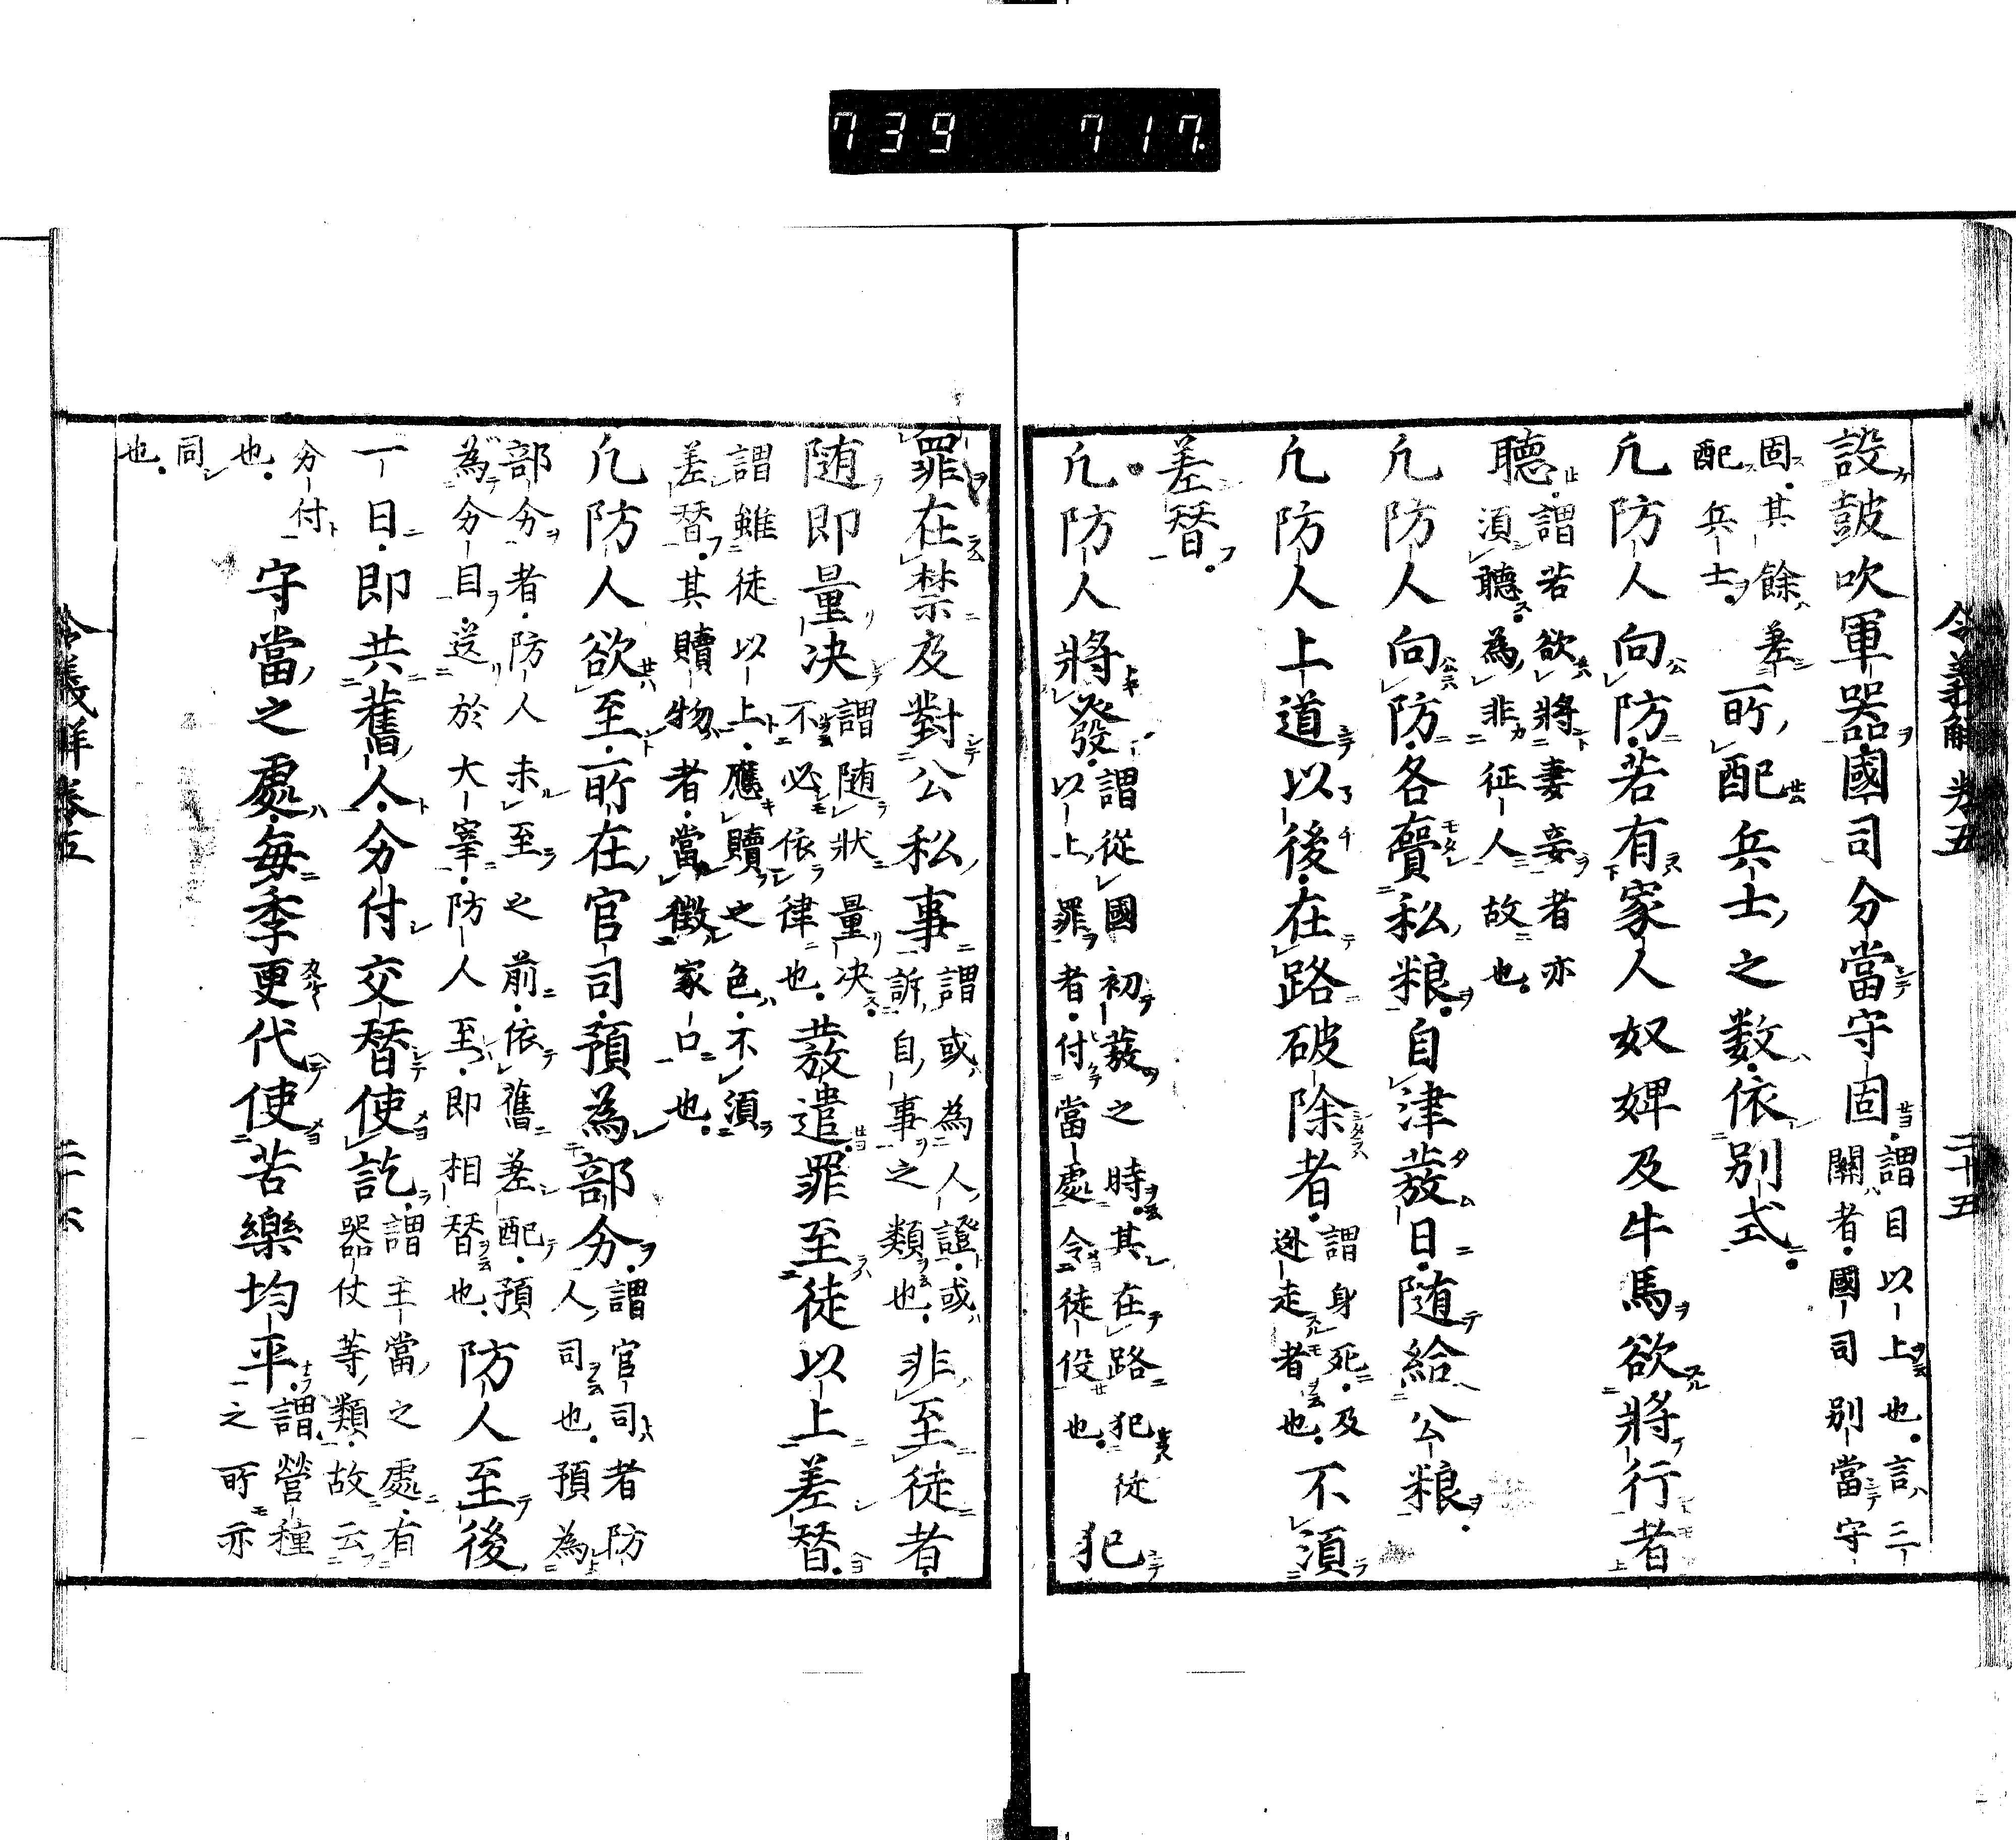 739 717.
令義解 卷五 二十五
設皷吹軍器國司分當守固謂目以上也言三
關者國司別當守
固其餘差
配兵士所配兵士之数依別式
凢防人向防若有家人奴婢及牛馬欲將行者
聽謂若欲將妻妾者亦
須聽為非征人故也
凢防人向防各賷私粮自津發日随給公粮
凢防人上道以後在路破除者謂身死及
逃走者也不須
差替
凢防人將發謂從國初發之時其在路犯徒
以上罪者付當處令徒役也犯
罪在禁及對公私事謂或為人證或
訴自事之類也非至徒者
随即量决謂随狀量决
不必依律也發遣罪至徒以上差替
謂雖徒以上應贖之色不須
差替其贖物者當徵家口也
凢防人欲至所在官司預為部分謂官司者防
人司也預為
部分者防人未至之前依舊差配預
為分目送於大宰防人至即相替也防人至後
一日即共舊人分付交替使訖謂主當之處有
器仗等類故云
分付
也守當之處毎季更代使苦樂均平謂營種
之所亦
同
也
令義解卷五 二十六